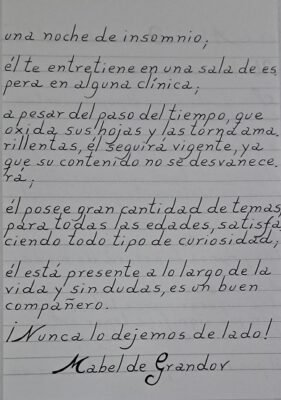 una noche de insomnio;
él te entretiene en una sala de es
pera en alguna clínica;
a pesar del paso del tiempo, que
oxida sus hojas y las torna ama.
rillentas, él seguirá vigente, ya
que su contenido no se desvanece.
rá;
él posee gran cantidad de temas,
para todas las edades, satisfa
ciendo todo tipo de curiosidad;
él está presente a lo largo, de la
vida y sin dudas, es un buen
compañero.
¡Nunca lo dejemos de lado!
Mabel de Grandov